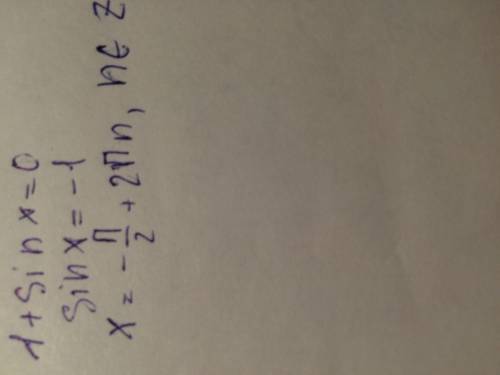 1 + sin x = 0
sin x = -1
x = -π/2 + 2πn, n ∈ Z